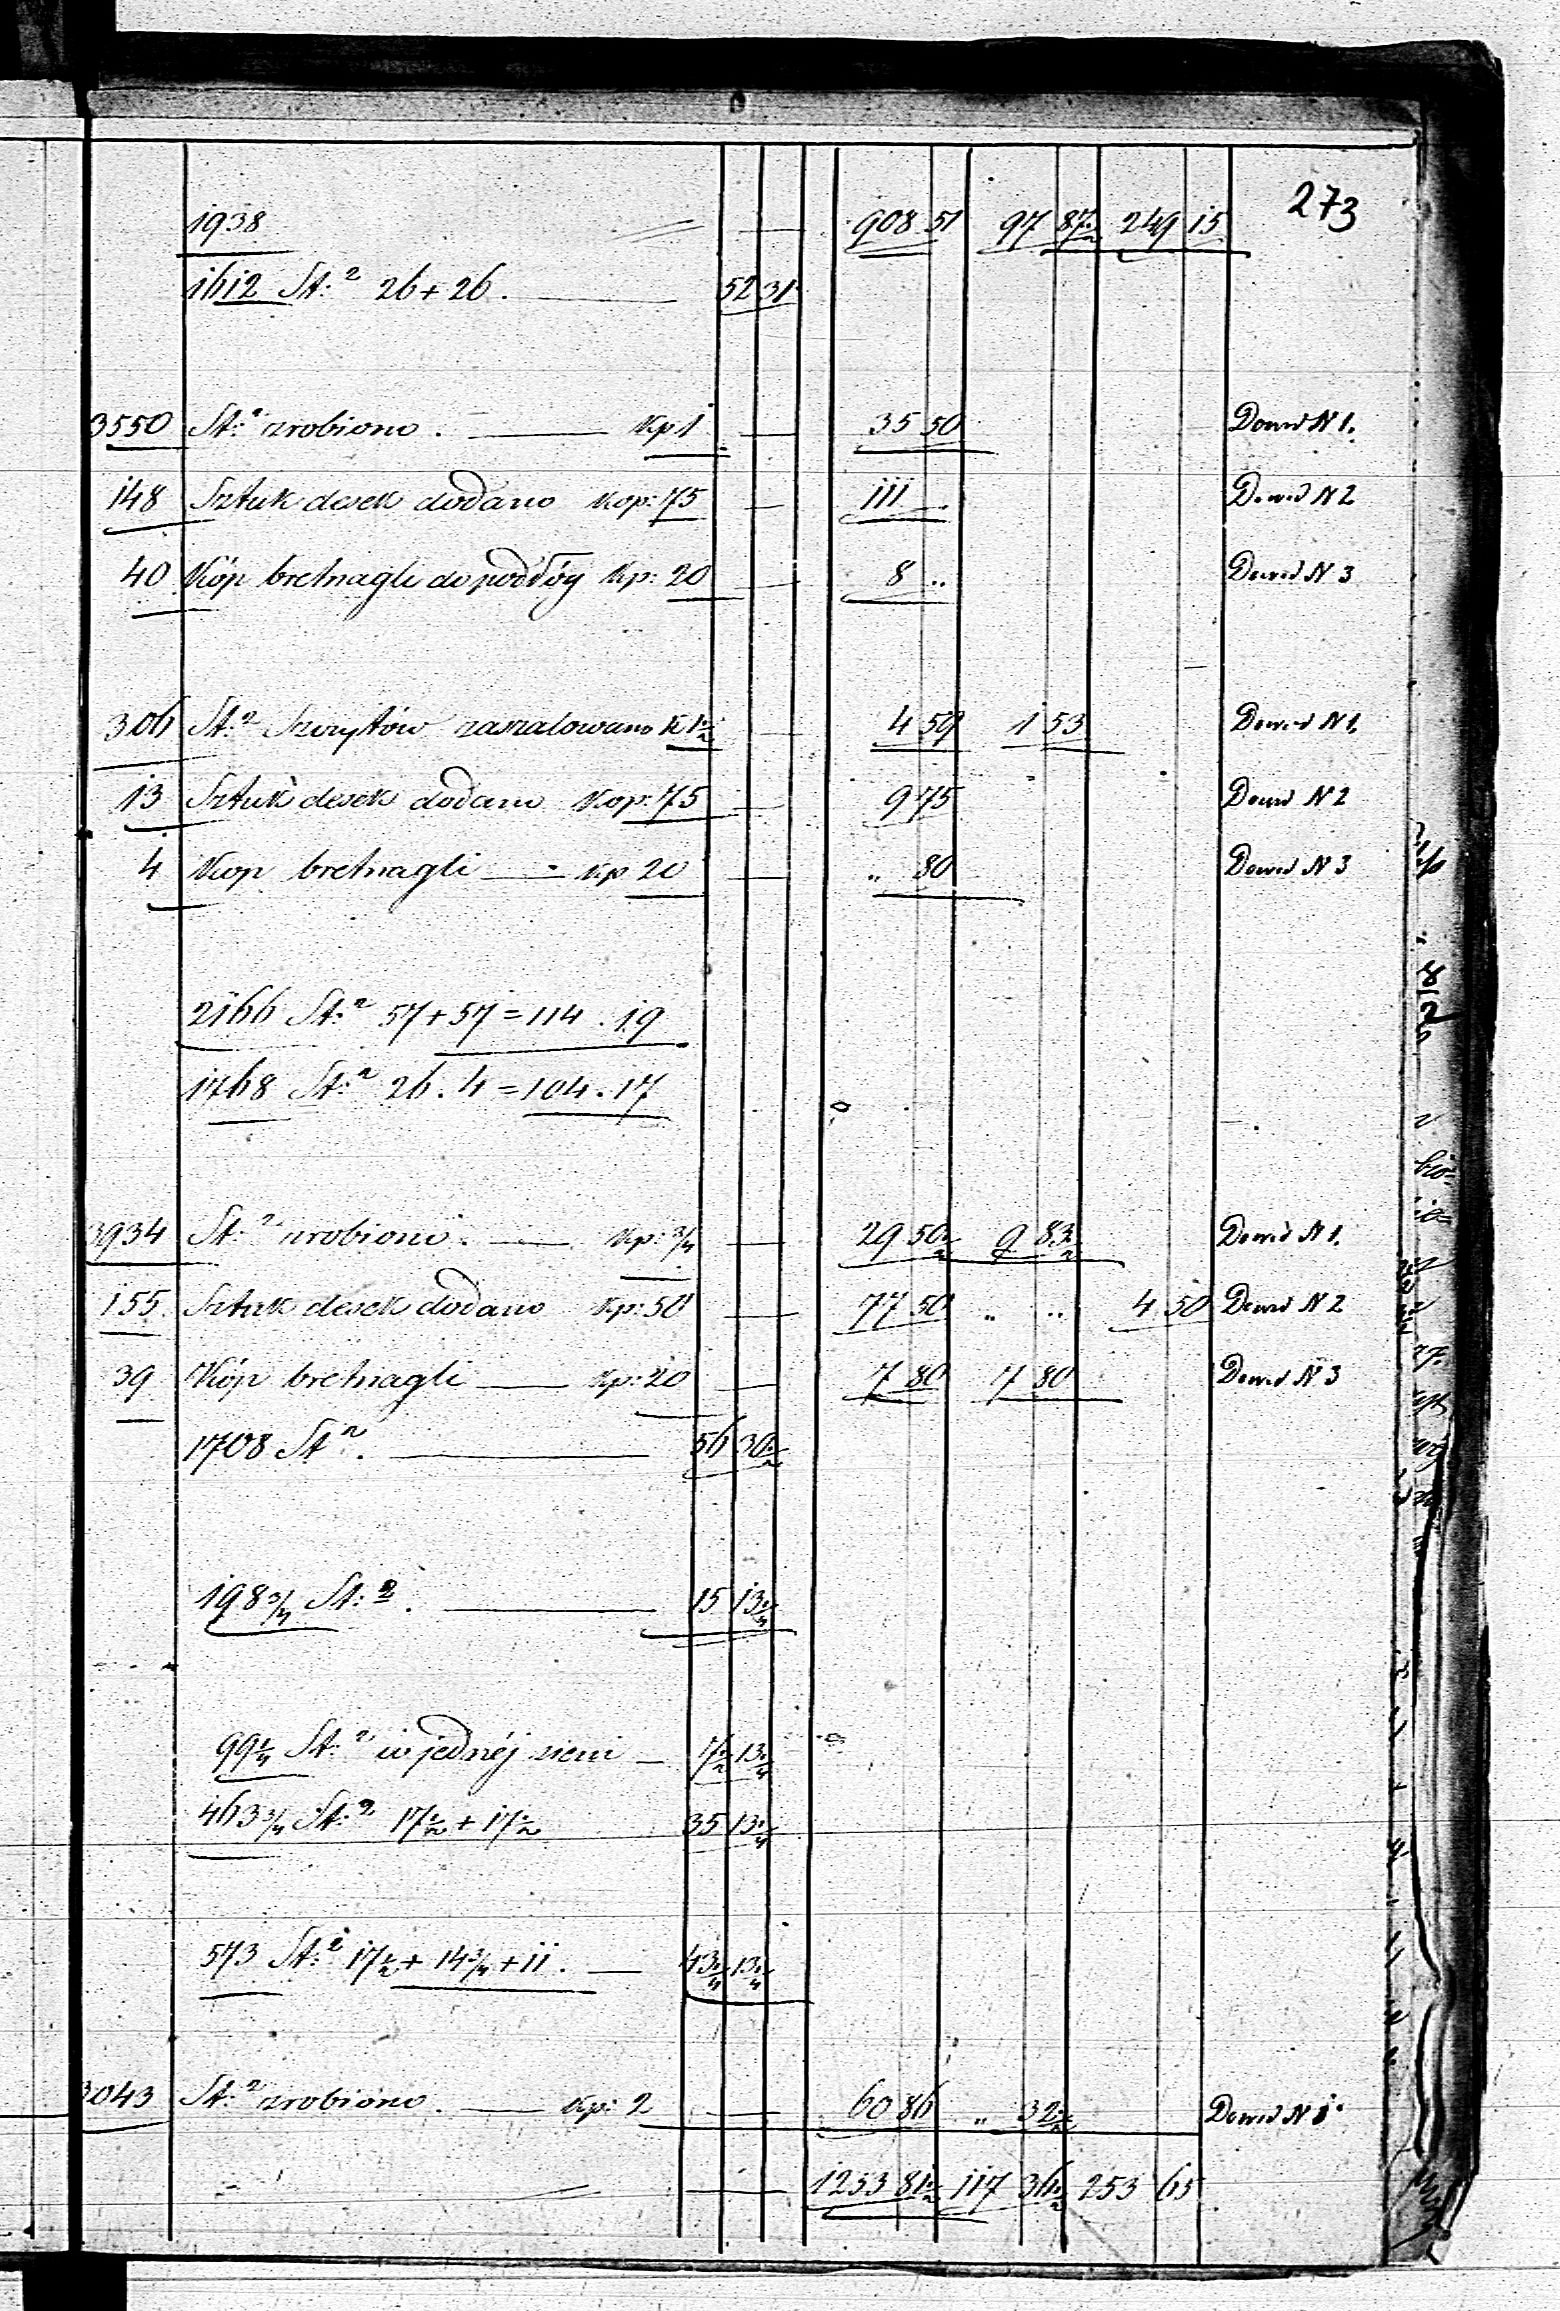 273
1938 908 51 97 87½ 249 15
1612 St:² 26+26. 52 31
3550 St:² zrobiono. Kp 1 35 50 Dowod N 1.
148 Sztuk desek dodano Kop: 75 111 .. Dowod N 2
40 Kóp bretnagli do podłóg Kp: 20 8 .. Dowod N 3
306 St:² Szczytów zaszalowano K 1½ 4 59 1 53 Dowod N 1.
13 Sztuk desek dodano Kop: 75 9 75 Dowod N 2
4 Kop bretnagli Kp 20 .. 80 Dowod N 3
2166 St:² 57+57=114 . 19
1768 St:² 26 . 4=104 . 17
3934 St:² zrobiono. Kp: ¾ 29 50½ 9 83½ Dowod N 1.
155 Sztuk desek dodano Kp: 50 77 50 .. .. 4 50 Dowod N 2
39 Kóp bretnagli Kp: 20 7 80 7 80 Dowod N 3
1708 St². 56 30½
198¾ St:². 15 13¼
99¼ St:² w jednéj sieni 7½ 13¼
463¾ St:² 17½+17½ 35 13¼
573 St:² 17½+14¾+11. 43¼ 13¼
3043 St:² zrobiono. Kp: 2 60 86 .. 32½ Dowod N 1.
1253 81½ 117 36½ 253 65